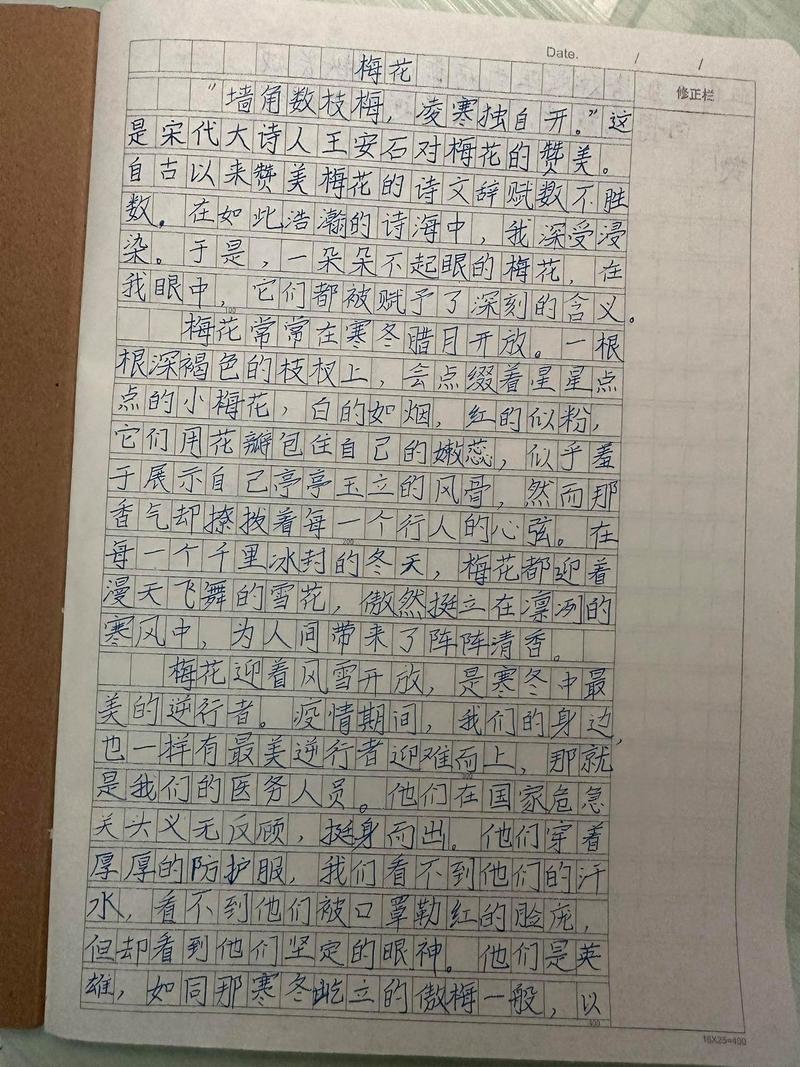 Date. / /
修正栏
梅花
“墙角数枝梅，凌寒独自开。”这
是宋代大诗人王安石对梅花的赞美。
自古以来赞美梅花的诗文辞赋数不胜
数。在如此浩瀚的诗海中，我深受浸
染。于是，一朵朵不起眼的梅花，在
我眼中，它们都被赋予了深刻的含义。
100
梅花常常在寒冬腊月开放。一根
根深褐色的枝杈上，会点缀着星星点
点的小梅花，白的如烟，红的似粉，
它们用花瓣包住自己的嫩蕊，似乎羞
于展示自己亭亭玉立的风骨，然而那
香气却撩拨着每一个行人的心弦。在
200
每一个千里冰封的冬天，梅花都迎着
漫天飞舞的雪花，傲然挺立在凛冽的
寒风中，为人间带来了阵阵清香。
梅花迎着风雪开放，是寒冬中最
美的逆行者。疫情期间，我们的身边，
也一样有最美逆行者迎难而上，那就
300
是我们的医务人员。他们在国家危急
关头义无反顾，挺身而出。他们穿着
厚厚的防护服，我们看不到他们的汗
水，看不到他们被口罩勒红的脸庞，
但却看到他们坚定的眼神。他们是英
雄，如同那寒冬屹立的傲梅一般，以
400
16X25=400